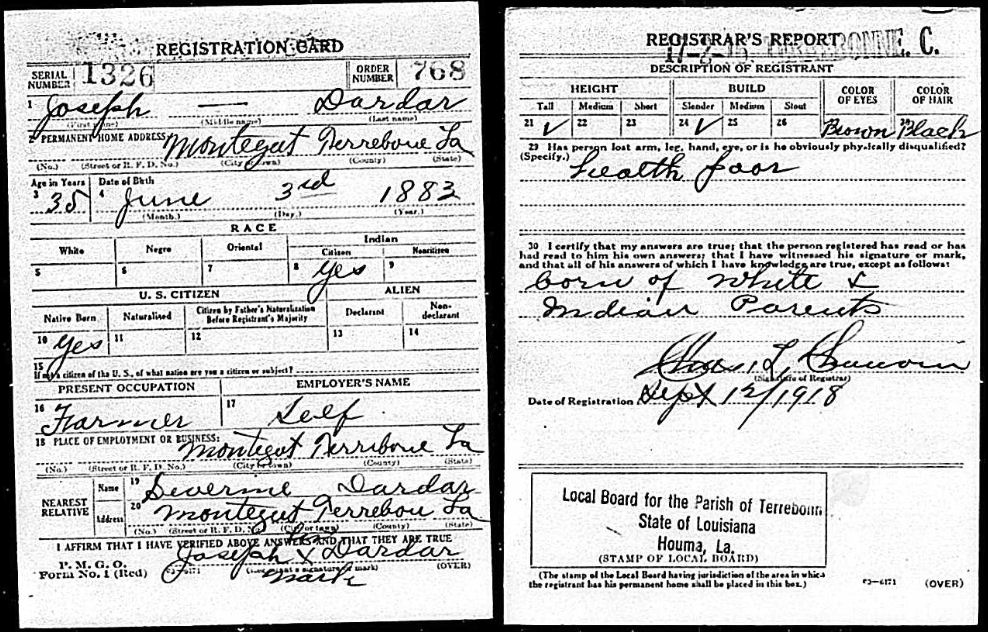 REGISTRATION CARD
SERIAL NUMBER 1326 ORDER NUMBER 768
1 Joseph — Dardar
(First name) (Middle name) (Last name)
2 PERMANENT HOME ADDRESS: Montegut Terrebone La
(No.) (Street or R. F. D. No.) (City or town) (County) (State)
Age in Years Date of Birth
3 35 4 June 3rd 1883
(Month.) (Day.) (Year.)
RACE
White Negro Oriental Indian
Citizen Noncitizen
5 6 7 8 Yes 9
U. S. CITIZEN ALIEN
Native Born Naturalized Citizen by Father's Naturalization Before Registrant's Majority Declarant Non-declarant
10 Yes 11 12 13 14
15
If not a citizen of the U. S., of what nation are you a citizen or subject?
PRESENT OCCUPATION EMPLOYER'S NAME
16 Farmer 17 Self
18 PLACE OF EMPLOYMENT OR BUSINESS:
Montegut Terrebone La
(No.) (Street or R. F. D. No.) (City or town) (County) (State)
NEAREST RELATIVE Name 19 Severine Dardar
Address 20 Montegut Terrebon La
(No.) (Street or R. F. D. No.) (City or town) (County) (State)
I AFFIRM THAT I HAVE VERIFIED ABOVE ANSWERS AND THAT THEY ARE TRUE
P. M. G. O.
Form No. 1 (Red) Joseph X Dardar
03—6171 (Registrant's signature or mark) (OVER)
mark
REGISTRAR'S REPORT
17-2-15 TERREBONNE. C.
DESCRIPTION OF REGISTRANT
HEIGHT BUILD COLOR OF EYES COLOR OF HAIR
Tall Medium Short Slender Medium Stout
21 ✓ 22 23 24 ✓ 25 26 27 Brown 28 Black
29 Has person lost arm, leg, hand, eye, or is he obviously physically disqualified?
(Specify.) Health poor
30 I certify that my answers are true; that the person registered has read or has
had read to him his own answers; that I have witnessed his signature or mark,
and that all of his answers of which I have knowledge are true, except as follows:
born of White &
Indian Parents
Chas. L.
(Signature of Registrar)
Date of Registration Sept 12/1918
Local Board for the Parish of Terrebonn
State of Louisiana
Houma, La.
(STAMP OF LOCAL BOARD)
(The stamp of the Local Board having jurisdiction of the area in which
the registrant has his permanent home shall be placed in this box.)
03—6171 (OVER)